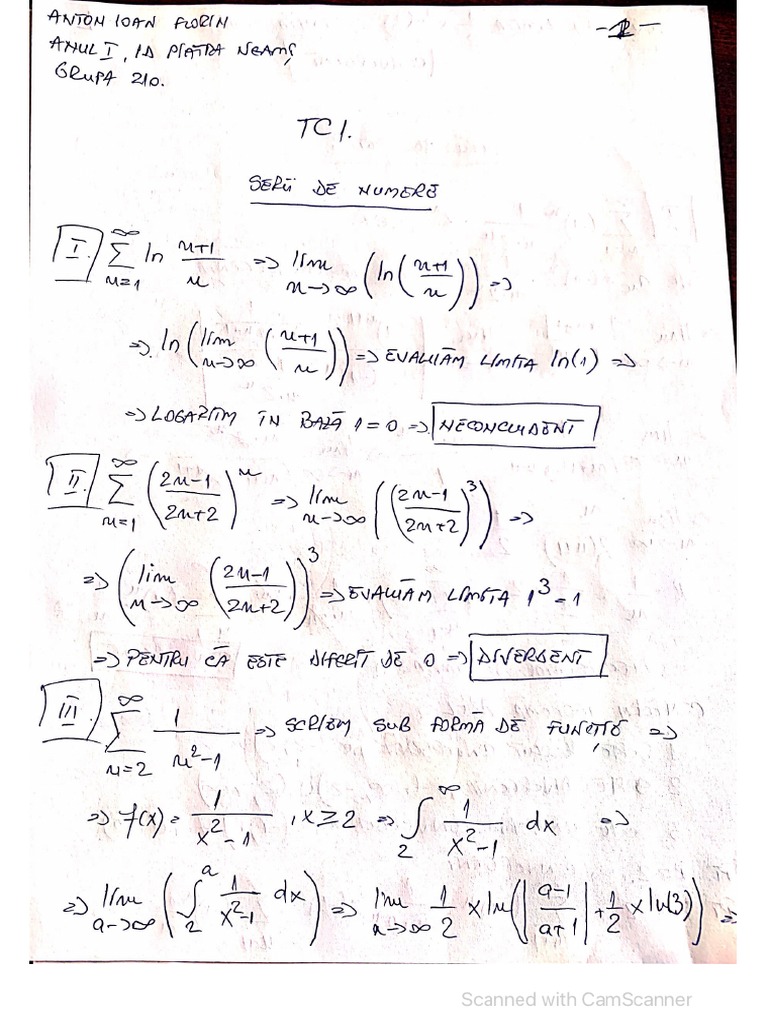 ANTON IOAN FLORIN
- 1 -
ANUL I, ID PIATRA NEAMȚ
GRUPA 210.
TC1.
SERII DE NUMERE
I. ∑_{n=1}^{∞} ln (n+1)/n => lim_{n→∞} (ln((n+1)/n)) =>
=> ln(lim_{n→∞} ((n+1)/n)) => EVALUĂM LIMITA ln(1) =>
=> LOGARITM ÎN BAZĂ 1=0 => NECONCLUDENT
II. ∑_{n=1}^{∞} ((2n-1)/(2n+2))^n => lim_{n→∞} (((2n-1)/(2n+2))^3) =>
=> (lim_{n→∞} ((2n-1)/(2n+2)))^3 => EVALUĂM LIMITA 1^3=1
=> PENTRU CĂ ESTE DIFERIT DE 0 => DIVERGENT
III. ∑_{n=2}^{∞} 1/(n^2-1) => SCRIEM SUB FORMĂ DE FUNCȚIE =>
=> f(x)= 1/(x^2-1), x≥2 => ∫_2^∞ 1/(x^2-1) dx =>
=> lim_{a→∞} (∫_2^a 1/(x^2-1) dx) => lim_{a→∞} 1/2 x ln(|(a-1)/(a+1)| + 1/2 x ln(3)) =>
Scanned with CamScanner